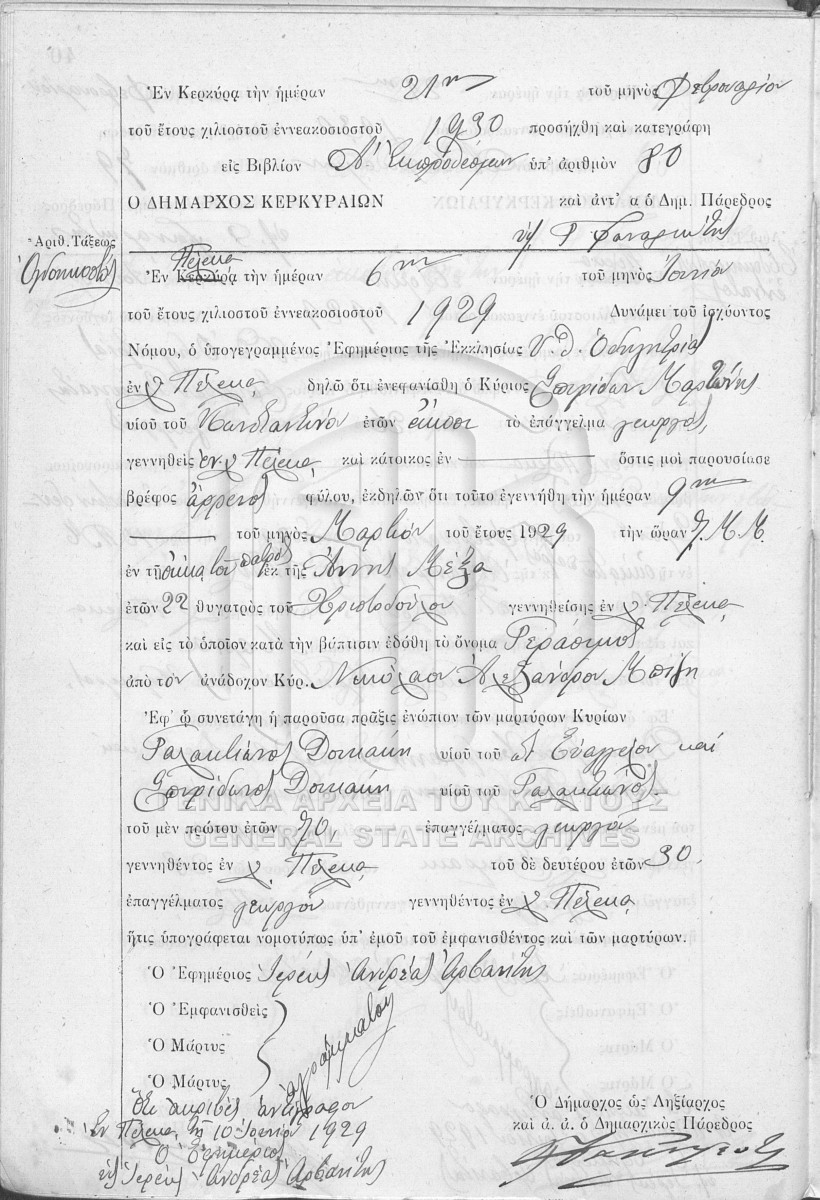 Ἐν Κερκύρᾳ τὴν ἡμέραν 21ην τοῦ μηνὸς Φεβρουαρίου
τοῦ ἔτους χιλιοστοῦ ἐννεακοσιοστοῦ 1930 προσήχθη καὶ κατεγράφη
εἰς Βιβλίον Α. Ἐκπροθέσμων ὑπ' ἀριθμὸν 80
Ο ΔΗΜΑΡΧΟΣ ΚΕΡΚΥΡΑΙΩΝ καὶ ἀντ' α ὁ Δημ. Πάρεδρος
Ἀριθ. Τάξεως
Ὀγδοηκοστὸς
Πέλεκα
Ἐν Κερκύρᾳ τὴν ἡμέραν 6ην τοῦ μηνὸς Ἰουνίου
τοῦ ἔτους χιλιοστοῦ ἐννεακοσιοστοῦ 1929 Δυνάμει τοῦ ἰσχύοντος
Νόμου, ὁ ὑπογεγραμμένος Ἐφημέριος τῆς Ἐκκλησίας Υ. Θ. Ὁδηγητρίας
ἐν χ. Πέλεκα δηλῶ ὅτι ἐνεφανίσθη ὁ Κύριος Σπυρίδων Μαρτζούκης
υἱοῦ τοῦ Κωνσταντίνου ἐτῶν εἴκοσι τὸ ἐπάγγελμα γεωργὸς
γεννηθεὶς ἐν χ. Πέλεκα καὶ κάτοικος ἐν ὅστις μοὶ παρουσίασε
βρέφος ἄρρενος φύλου, ἐκδηλῶν ὅτι τοῦτο ἐγεννήθη τὴν ἡμέραν 9ην
τοῦ μηνὸς Μαρτίου τοῦ ἔτους 1929 τὴν ὥραν 7. Μ. Μ.
ἐν τῇ οἰκίᾳ τοῦ πατρὸς ἐκ τῆς Ἄννης Μέξα
ἐτῶν 22 θυγατρὸς τοῦ Χριστοδούλου γεννηθείσης ἐν χ. Πέλεκα
καὶ εἰς τὸ ὁποῖον κατὰ τὴν βάπτισιν ἐδόθη τὸ ὄνομα Γεράσιμος
ἀπὸ τὸν ἀνάδοχον Κύρ. Νικόλαον Ἀλεξάνδρου Μπίζη
Ἐφ' ᾧ συνετάγη ἡ παροῦσα πρᾶξις ἐνώπιον τῶν μαρτύρων Κυρίων
Γαλακτιῶνος Δουκάκη υἱοῦ τοῦ Εὐαγγέλου καὶ
Σπυρίδωνος Δουκάκη υἱοῦ τοῦ Γαλακτιῶνος
ΓΕΝΙΚΑ ΑΡΧΕΙΑ ΤΟΥ ΚΡΑΤΟΥΣ
τοῦ μὲν πρώτου ἐτῶν 70, ἐπαγγέλματος γεωργοῦ
GENERAL STATE ARCHIVES
γεννηθέντος ἐν χ. Πέλεκα τοῦ δὲ δευτέρου ἐτῶν 30.
ἐπαγγέλματος γεωργοῦ γεννηθέντος ἐν χ. Πέλεκα
ἥτις ὑπογράφεται νομοτύπως ὑπ' ἐμοῦ τοῦ ἐμφανισθέντος καὶ τῶν μαρτύρων.
Ὁ Ἐφημέριος Ἱερεὺς Ἀνδρέας Ἀρβανίτης
Ὁ Ἐμφανισθεὶς
Ὁ Μάρτυς
Ὁ Μάρτυς
ἀγράμματοι
Ὅτι ἀκριβὲς ἀντίγραφον
Ἐν Πέλεκα τῇ 10 Ἰουνίου 1929
Ὁ Ἐφημέριος
Ἱερεὺς Ἀνδρέας Ἀρβανίτης
Ὁ Δήμαρχος ὡς Ληξίαρχος
καὶ ἀ. ἀ. ὁ Δημαρχικὸς Πάρεδρος